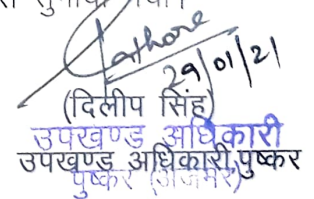 Rathore
29/01/21
(दिलीप सिंह)
उपखण्ड अधिकारी
उपखण्ड अधिकारी, पुष्कर
पुष्कर (अजमेर)